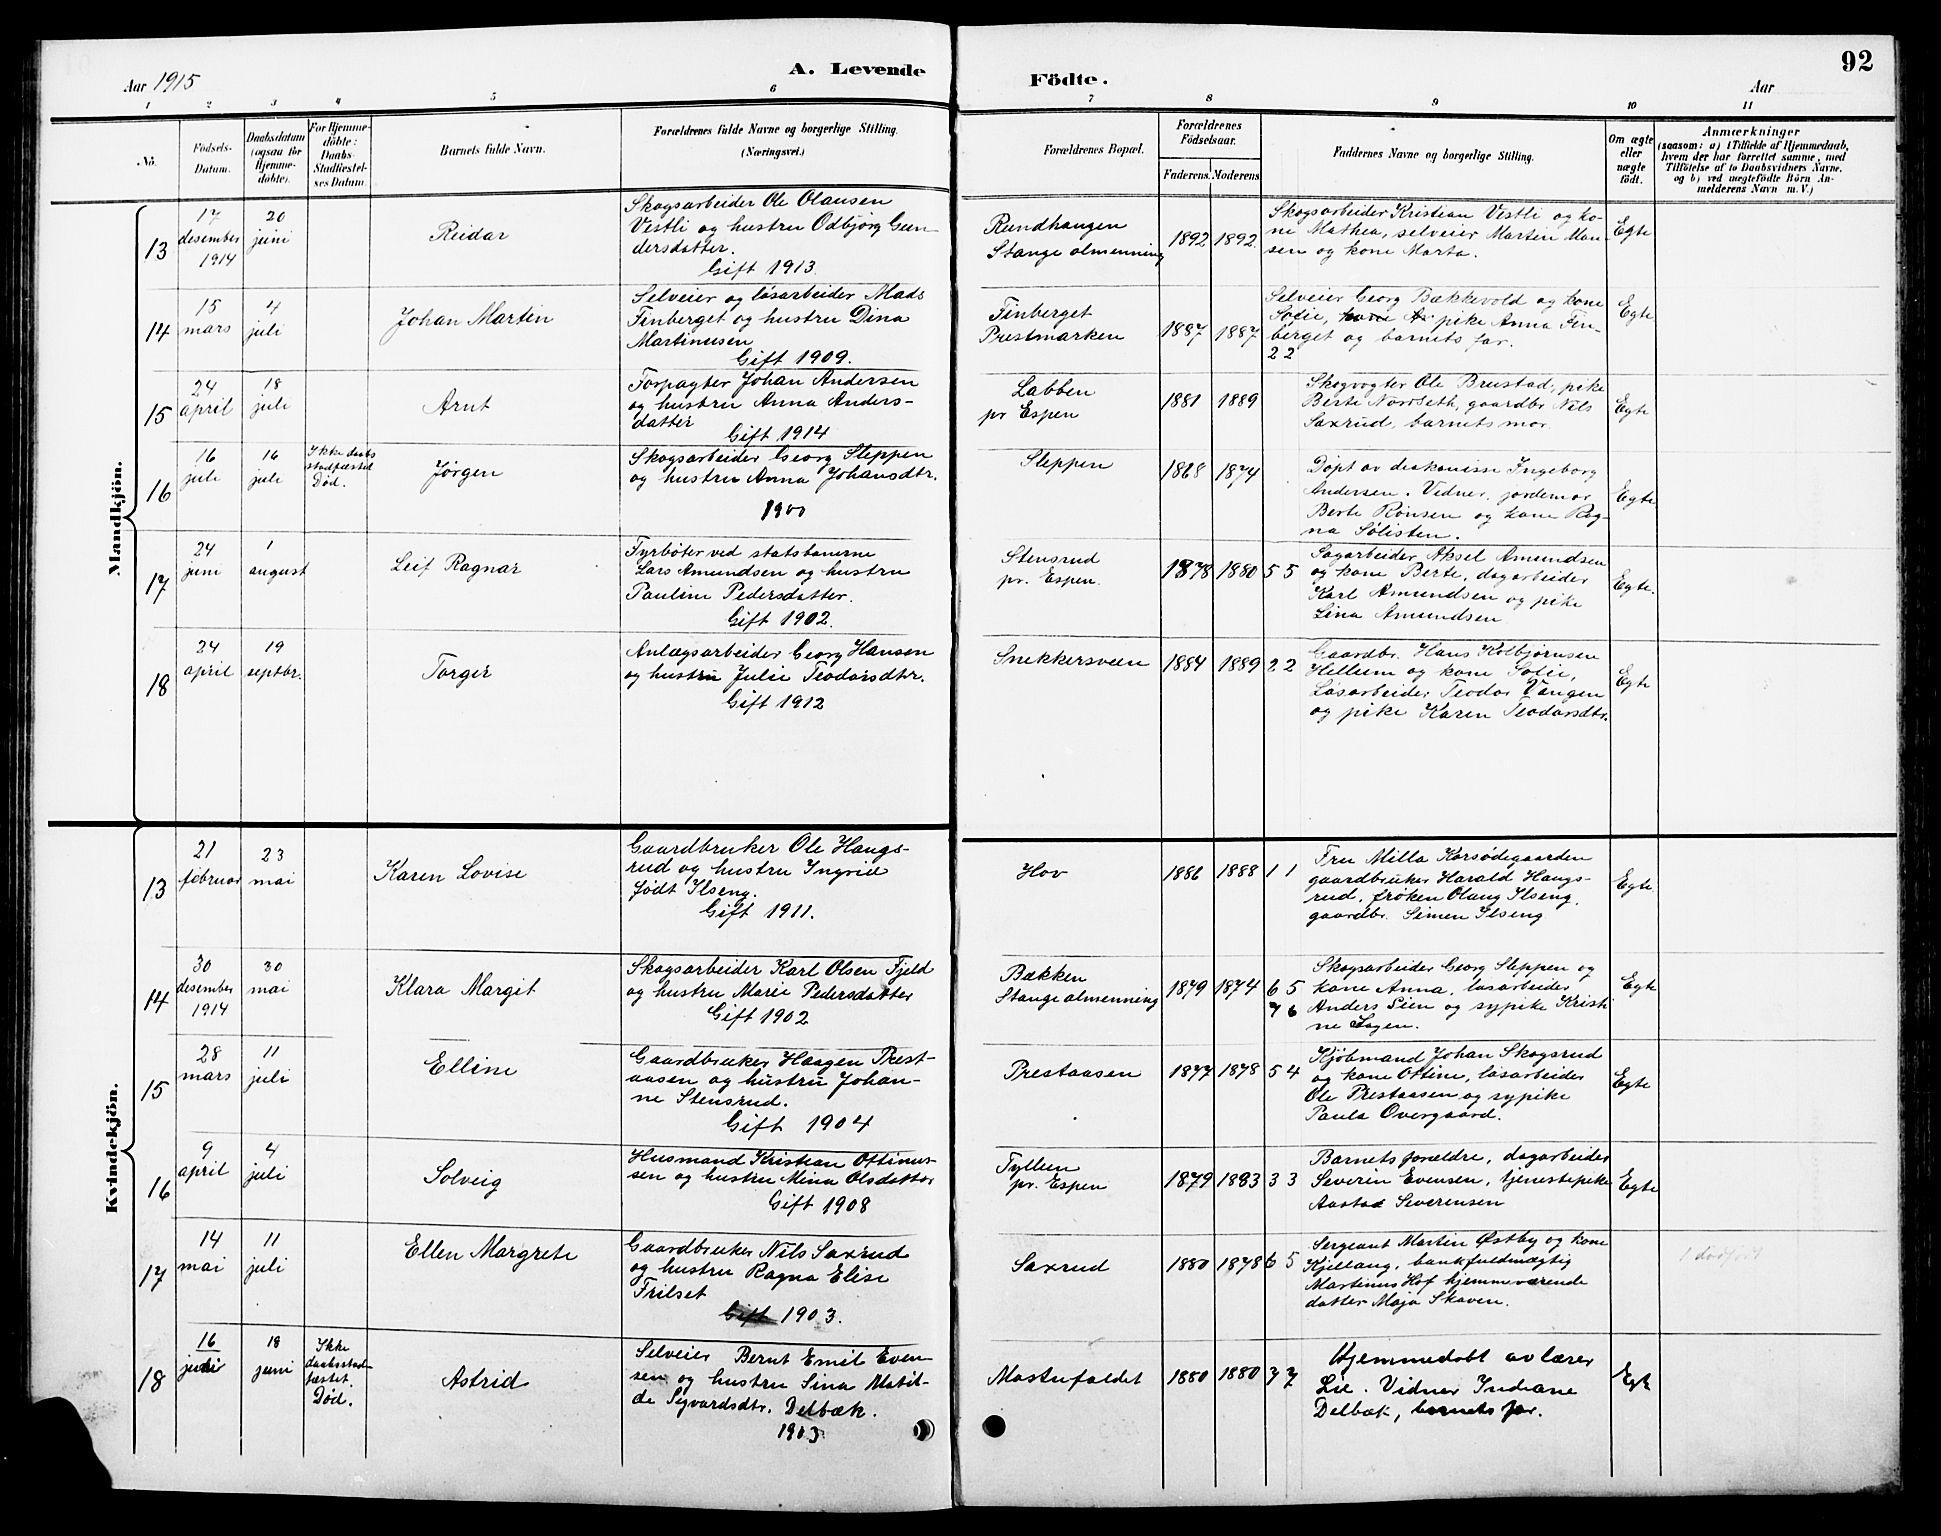 Aar 1915
A. Levende
Födte.
Aar
92
1 2 3 4 5 6 7 8 9 10 11
No.
Födsels-
Datum.
Daabsdatum
(ogsaa for
Hjemme-
döbte).
For Hjemme-
döbte:
Daabs-
Stadfæstel-
ses Datum.
Barnets fulde Navn.
Forældrenes fulde Navne og borgerlige Stilling.
(Næringsvei.)
Forældrenes Bopæl.
Forældrenes
Födselsaar.
Faderens. Moderens.
Faddernes Navne og borgerlige Stilling.
Om ægte
eller
uægte
födt.
Anmærkninger
(saasom: a) i Tilfælde af Hjemmedaab,
hvem der har forrettet samme, med
Tilföielse af to Daabsvidners Navne.
og b) ved uægtefödte Börn An-
melderens Navn m. V.)
Mandkjön.
13
17
desember
1914
20
juni
Reidar
Skogsarbeider Ole Olausen
Vestli og hustru Odbjörg Gun-
dersdatter.
Gift 1913.
Rundhaugen
Stange almenning
1892 1892
Skogsarbeider Kristian Vestli og ko-
ne Mathea, selveier Martin Mon-
sen og kone Marta.
Egte
14
15
mars
4
juli
Johan Martin
Selveier og løsarbeider Mads
Finberget og hustru Dina
Martinusen
Gift 1909.
Finberget
Prestmarken
1887 1887
Selveier Georg Bækkevold og kone
Sofie, kone pike Anna Fin-
berget og barnets far.
2 2
Egte
15
24
april
18
juli
Arnt
Forpagter Johan Andersen
og hustru Anna Anders-
datter
Gift 1914
Labben
pr Espen
1881 1889
Skogvogter Ole Brustad, pike
Berte Nordseth, gaardbr. Nils
Saxrud, barnets mor.
Egte
16
16
juli
16
juli
Ikke daabs
stadfæstet
Død.
Jørgen
Skogsarbeider Georg Sleppen
og hustru Anna Johansdtr.
1900
Sleppen
1868 1874
Döpt av diakonisse Ingeborg
Andersen. Vidner, jordemor
Berte Rönsen og kone Rag-
na Sølisten.
Egte
17
24
juni
1
august
Leif Ragnar
Fyrbøter ved statsbanerne
Lars Amundsen og hustru
Pauline Pedersdatter.
Gift 1902.
Stensrud
pr. Espen.
1878 1880 5 5
Sagarbeider Aksel Amundsen
og kone Berte, dagarbeider
Karl Amundsen og pike
Lina Amundsen
Egte.
18
24
april
19
septbr.
Torgir
Anlægsarbeider Georg Hansen
og hustru Julie Teodorsdtr.
Gift 1912
Snekkersveen
1884 1889 2 2
Gaardbr. Hans Kolbjørnsen
Hellum og kone Sofie,
Løsarbeider Teodor Vangen
og pike Karen Teodorsdtr.
Egte
Kvindekjön.
13
21
februar
23
mai
Karen Lovise
Gaardbruker Ole Haugs-
rud og hustru Ingrid
født Ilseng.
Gift 1911.
Hov
1886 1888 1 1
Fru Milla Korsødegaarden
gaardbruker Harald Haugs-
rud, frøken Olaug Ilseng,
gaardbr. Simen Ilseng
Egte.
14
30
desember
1914
30
mai
Klara Margit
Skogsarbeider Karl Olsen Fjeld
og hustru Marie Pedersdatter
Gift 1902
Bækken
Stange almenning
1879 1874 6 5
7 6
Skogsarbeider Georg Sleppen og
kone Anna, løsarbeider
Anders Lien og sypike Kristi
ne Sagen.
Egte
15
28
mars
11
juli
Elline
Gaardbruker Haagen Prest-
aasen og hustru Johan-
ne Stensrud.
Gift 1904
Prestaasen
1877 1878 5 4
Kjøbmand Johan Skogsrud
og kone Ottine, løsarbeider
Ole Prestaasen og sypike
Paula Overgaard.
Egte
16
9
april
4
juli
Solveig
Husmand Kristian Ottinus-
sen og hustru Mina Olsdatter
Gift 1908
Tyllun
pr. Espen
1879 1883 3 3
Barnets forældre, dagarbeider
Severin Evensen, tjenestepike
Aasta Severensen
Egte
17
14
mai
11
juli
Ellen Margrete
Gaardbruker Nils Saxrud
og hustru Ragna Elise
Frilset
Gift 1903.
Saxrud
1880 1878 6 5
Sergeant Martin Østby og kone
Kjellaug, bankfuldmægtig
Martinus Hof hjemmeværende
datter Maja Skaven.
Egte
1 dødfødt
18
16
juni
18
juni
Ikke
daabsstad-
fæstet.
Død.
Astrid
Selveier Bernt Emil Even-
sen og hustru Lina Matil-
de Sigvardsdtr. Delbæk.
1903
Mostufaldet
1880 1880 7 7
Hjemmedøbt av lærer
Lie. Vidner Indiane
Delbæk, barnets far.
Egte